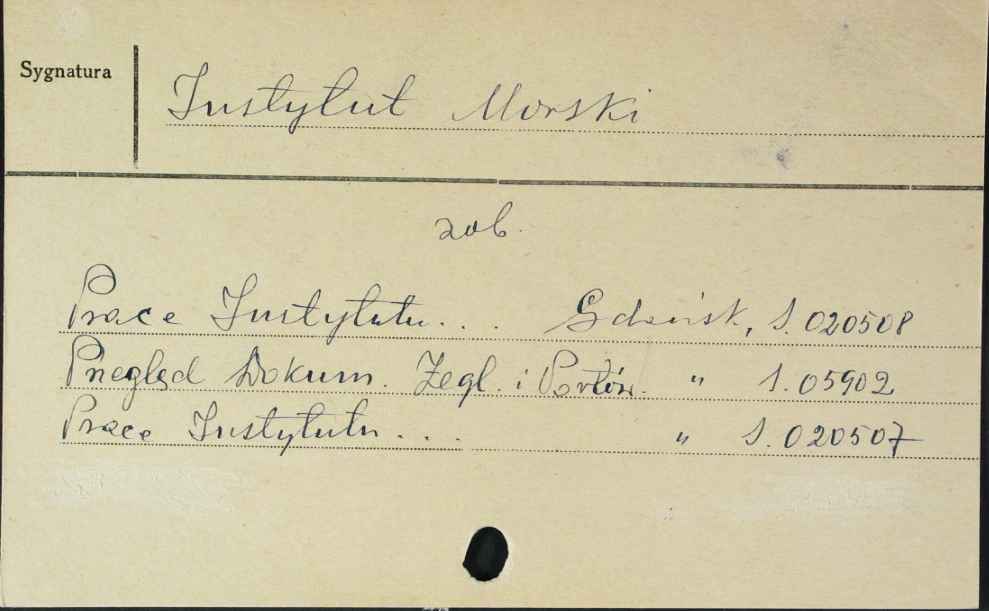 Sygnatura
Instytut Morski
zob.
Prace Instytutu... Gdańsk, S. 020508
Przegląd Dokum. Żegl. i Portów. " S. 05902
Prace Instytutu... " S. 020507